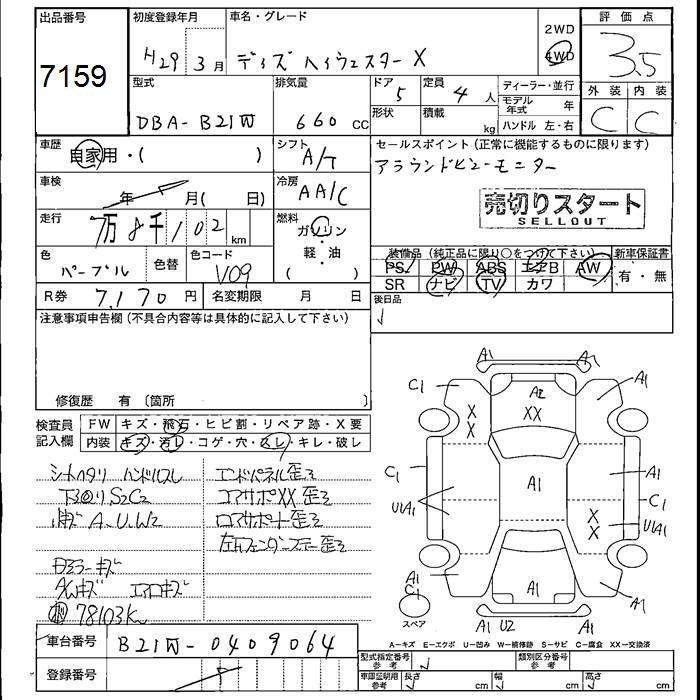 出品番号
7159
初度登録年月
H29 3月
車名・グレード
デイズ ハイウェスター X
2WD
4WD
評価点
3.5
外装 内装
C C
型式
DBA-B21W
排気量
660 cc
ドア 5
形状
定員 4 人
積載 kg
ディーラー・並行
モデル年式 年
ハンドル 左・右
車歴
自家用・( )
シフト
A/T
セールスポイント (正常に機能するものに限ります)
アラウンドビューモニター
売切りスタート
SELLOUT
車検
年 月( 日)
冷房
AA/C
走行
7万8千102 km
燃料
ガソリン
・
軽・油
( )
色
パープル
色替
色コード
V09
装備品 (純正品に限り〇をつけて下さい)
PS PW ABS エアB AW
SR ナビ TV カワ
新車保証書
有・無
R券 7,170 円
名変期限 月 日
後日品
注意事項申告欄(不具合内容等は具体的に記入して下さい)
修復歴 有 〔箇所 〕
検査員記入欄
FW キズ・飛石・ヒビ割・リペア跡・X要
内装 キズ・汚レ・コゲ・穴・スレ・キレ・破レ
シートヘタリ ハンドルスレ
下回りS2C2
A.U.W2
ドアミラーキズ
AWキズ エアロキズ
78103K
エンドパネル歪ミ
コアサポXX歪ミ
ロアサポート歪ミ
左Fフェンダーステー歪ミ
A1 A1
C1 A2 A1
XX
X
X
C1 A1 A1
C1
UA1 X
X UA1
A1
C1 A1 A1
A1 U2 A1
スペア
A-キズ E-エクボ U-凹み W-補修跡 S-サビ C-腐食 XX-交換済
車台番号 B21W-0409064
登録番号
型式指定番号 参考
類別区分番号 参考
車庫証明用 参考
長さ cm
幅 cm
高さ cm